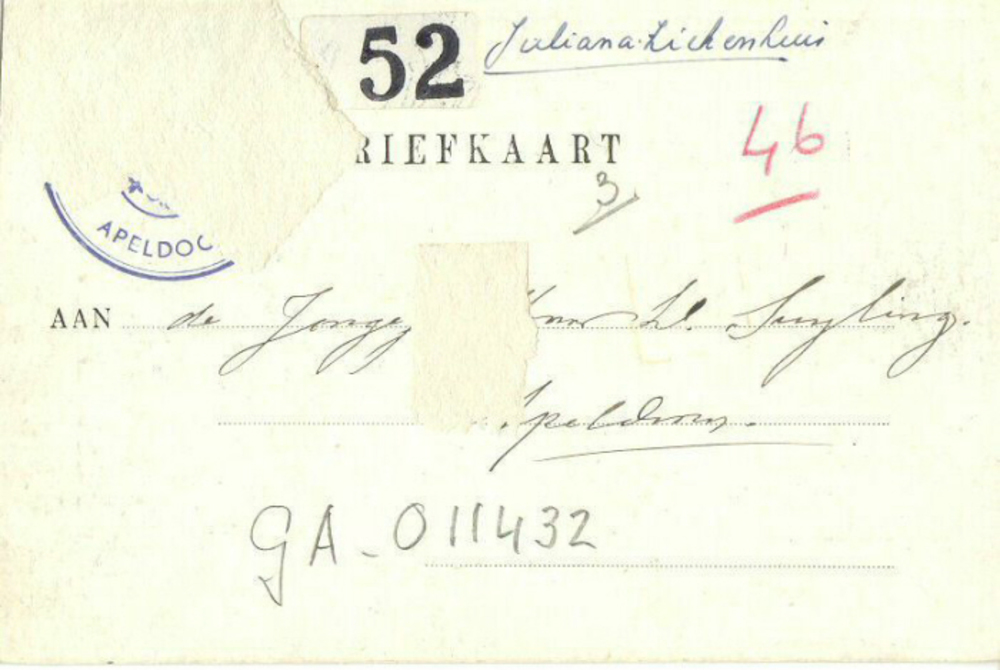 52 Juliana Ziekenhuis
RIEFKAART
46
3
APELDOO
AAN de
peldoorn.
GA-011432